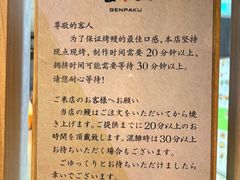 GENPAKU
尊敬的客人
为了保证烤鳗的最佳口感，本店坚持
现点现烤，制作时间需要 20 分钟以上，
拥挤时间可能需要等待 30 分钟以上。
请您耐心等待！
ご来店のお客様へお願い
当店の鰻はご注文をいただいてから焼
き上げます。ご提供までに 20分以上のお
時間を頂戴致します。混雑時は30分以上
お待ちいただく場合もございます。
ごゆっくりとお待ちいただけましたら
幸いでございます。